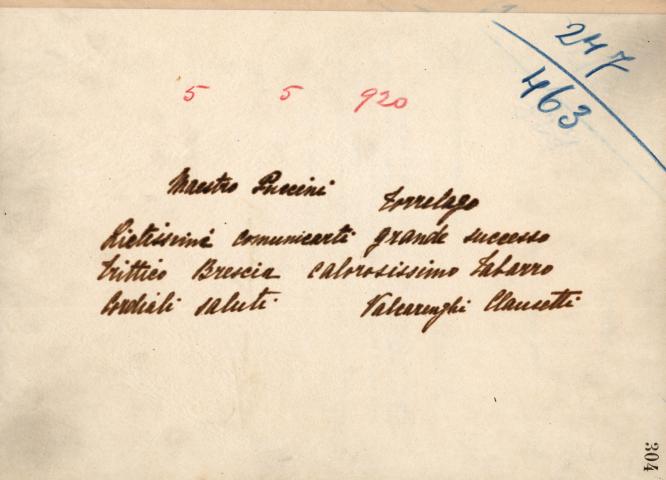 247
463
5 5 920
Maestro Puccini Torrelago
Lietissimi comunicarti grande successo
trittico Brescia calorosissimo Tabarro
Cordiali saluti. Valcarenghi Clausetti
304